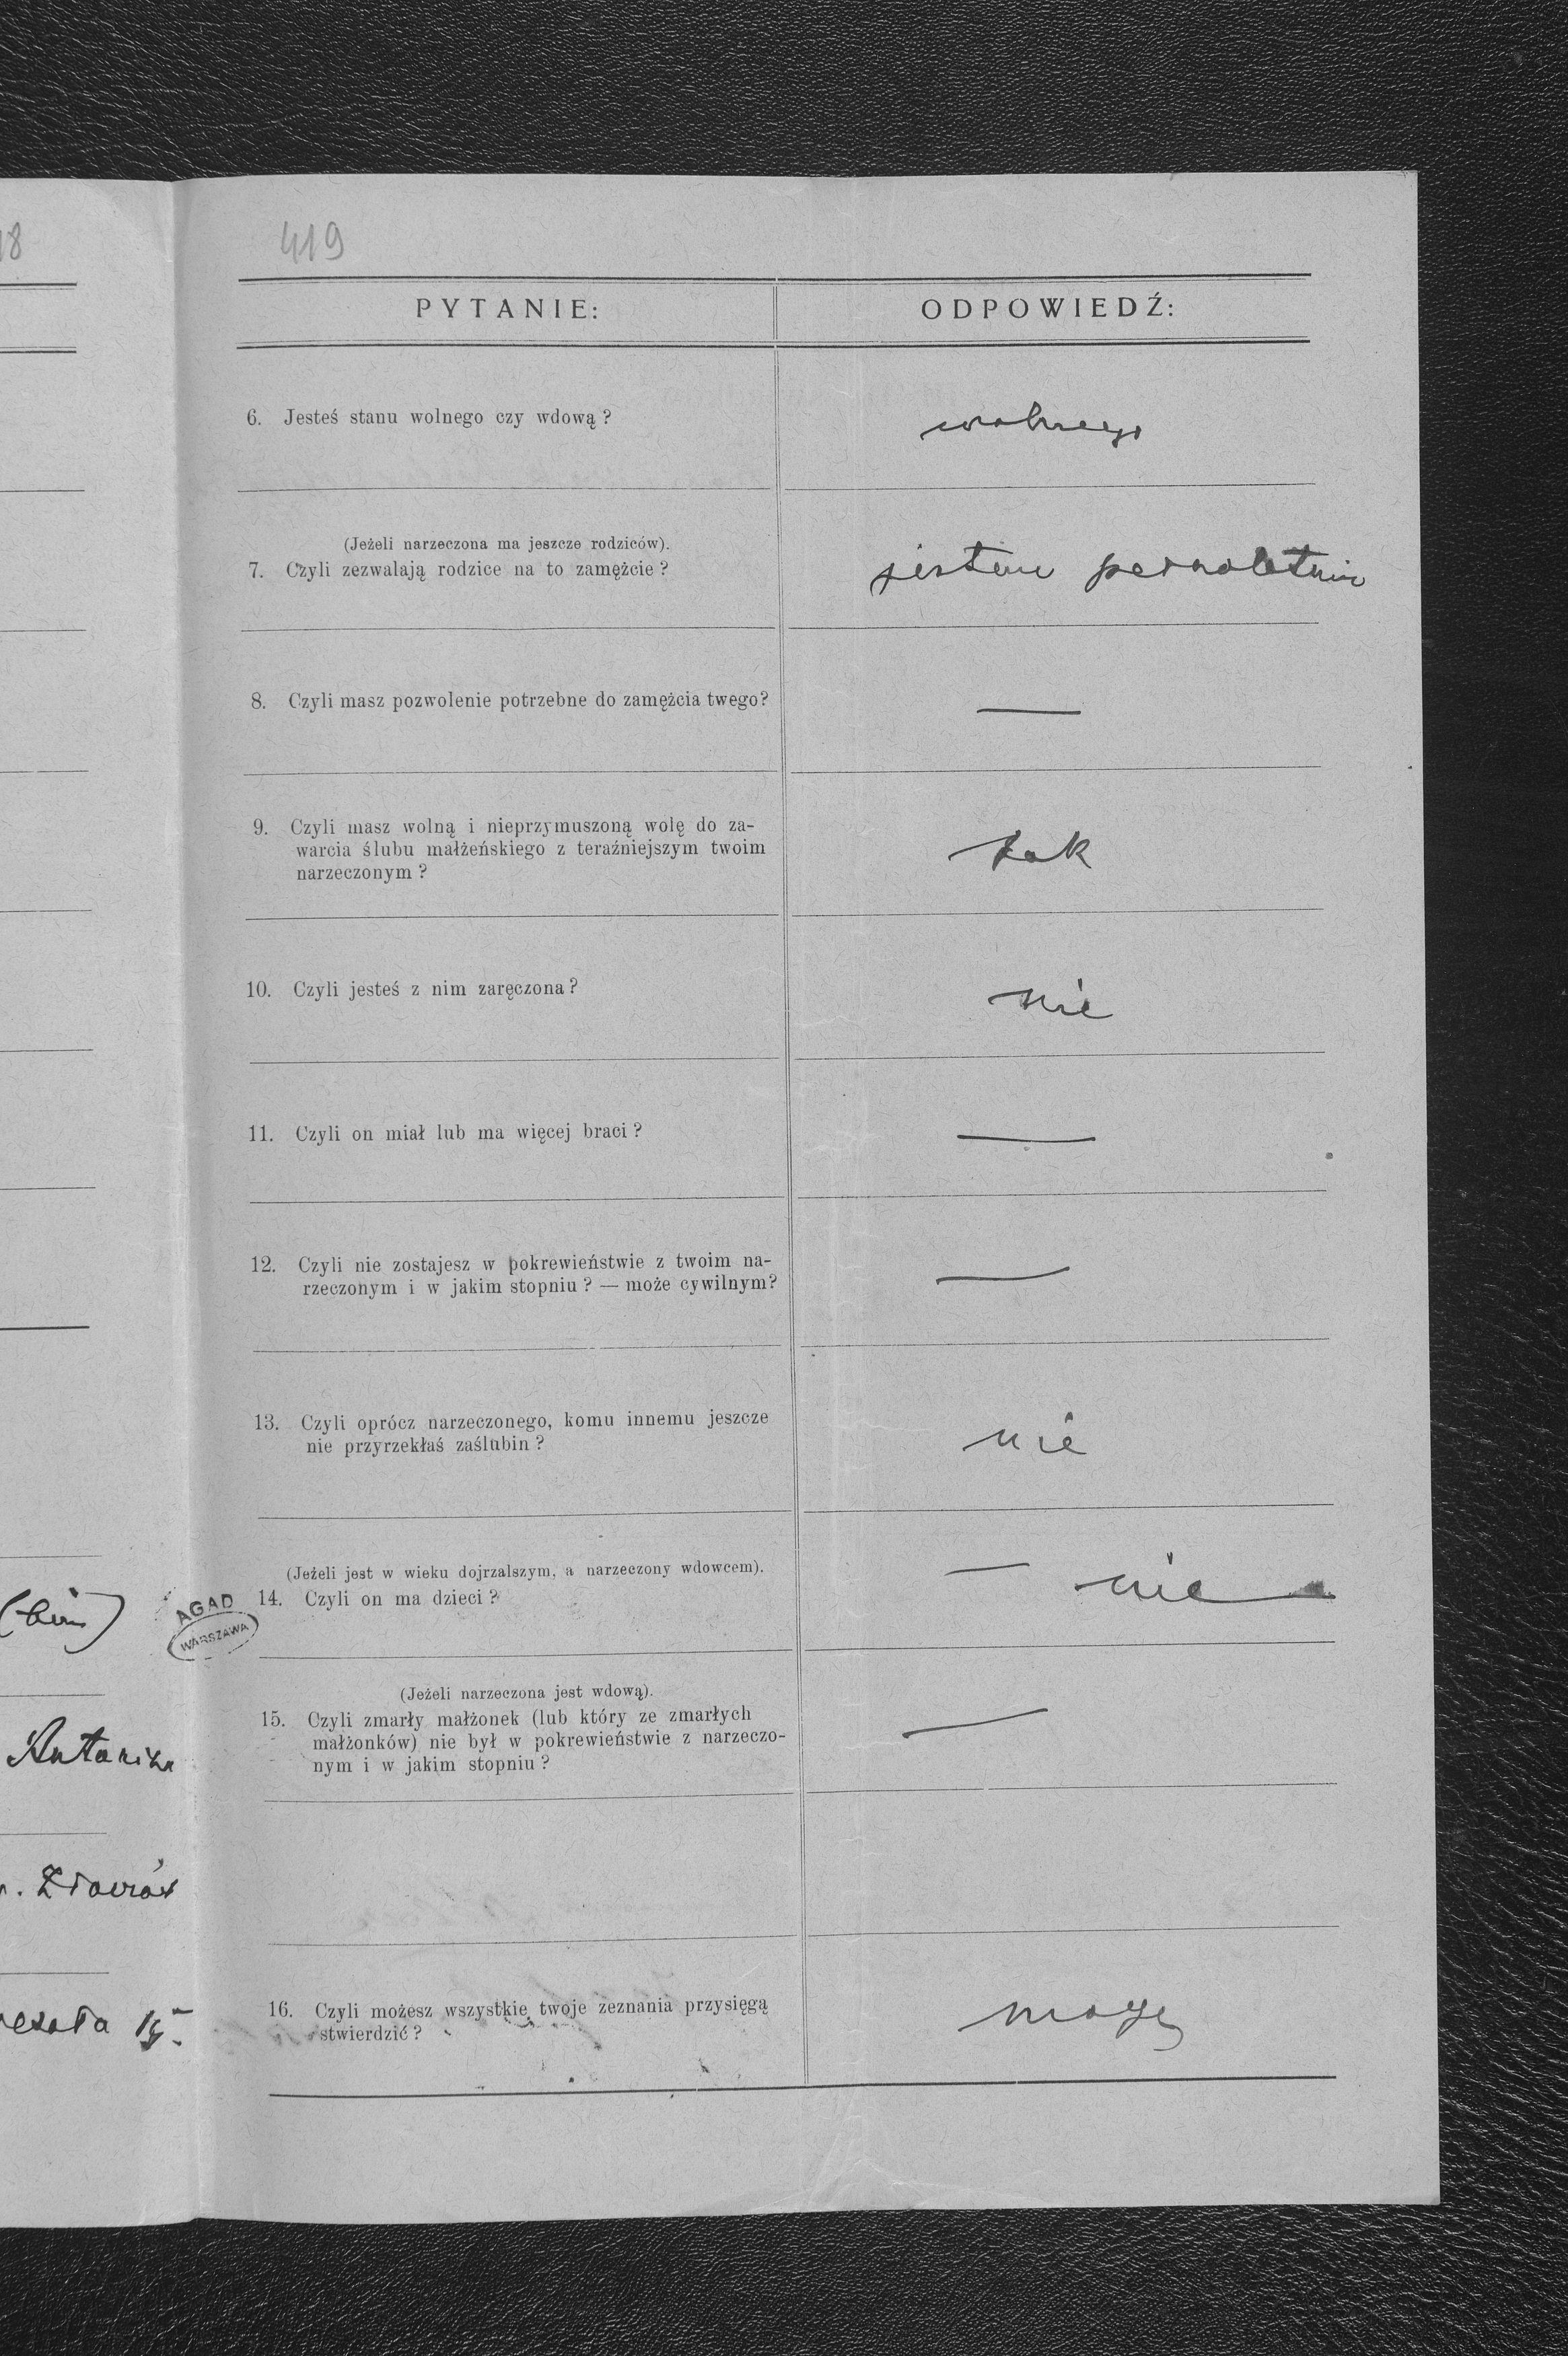 18
419
PYTANIE:
ODPOWIEDŹ:
6. Jesteś stanu wolnego czy wdową?
wolnego
(Jeżeli narzeczona ma jeszcze rodziców).
7. Czyli zezwalają rodzice na to zamężcie?
jestem pełnoletnia
8. Czyli masz pozwolenie potrzebne do zamężcia twego?
—
9. Czyli masz wolną i nieprzymuszoną wolę do za-
warcia ślubu małżeńskiego z teraźniejszym twoim
narzeczonym?
tak
10. Czyli jesteś z nim zaręczona?
nie
11. Czyli on miał lub ma więcej braci?
—
12. Czyli nie zostajesz w pokrewieństwie z twoim na-
rzeczonym i w jakim stopniu? — może cywilnym?
—
13. Czyli oprócz narzeczonego, komu innemu jeszcze
nie przyrzekłaś zaślubin?
nie
(Jeżeli jest w wieku dojrzalszym, a narzeczony wdowcem).
14. Czyli on ma dzieci?
— nie —
AGAD
WARSZAWA
(Jeżeli narzeczona jest wdową).
15. Czyli zmarły małżonek (lub który ze zmarłych
małżonków) nie był w pokrewieństwie z narzeczo-
nym i w jakim stopniu?
—
Antonina
16. Czyli możesz wszystkie twoje zeznania przysięgą
stwierdzić?
mogę